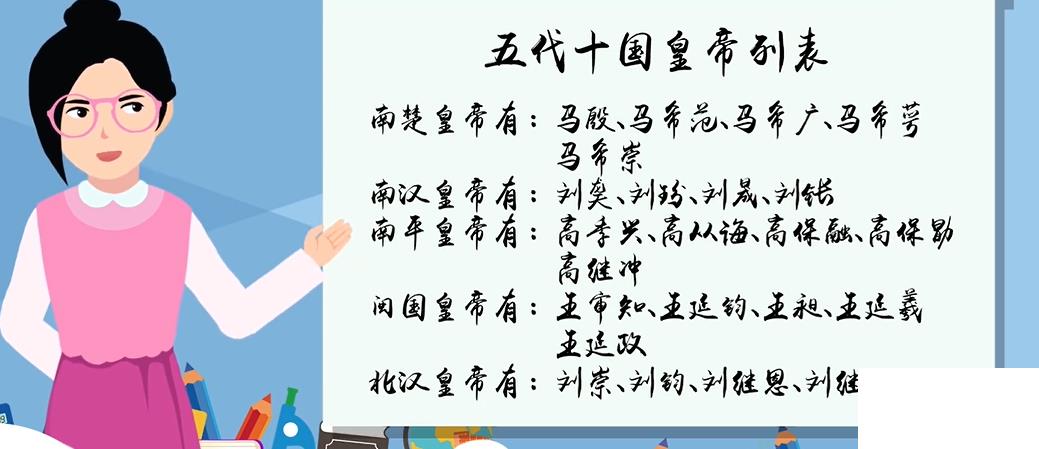 五代十国皇帝列表
南楚皇帝有：马殷、马希范、马希广、马希萼
马希崇
南汉皇帝有：刘䶮、刘玢、刘晟、刘鋹
南平皇帝有：高季兴、高从诲、高保融、高保勖
高继冲
闽国皇帝有：王审知、王延钧、王昶、王延羲
王延政
北汉皇帝有：刘崇、刘钧、刘继恩、刘继